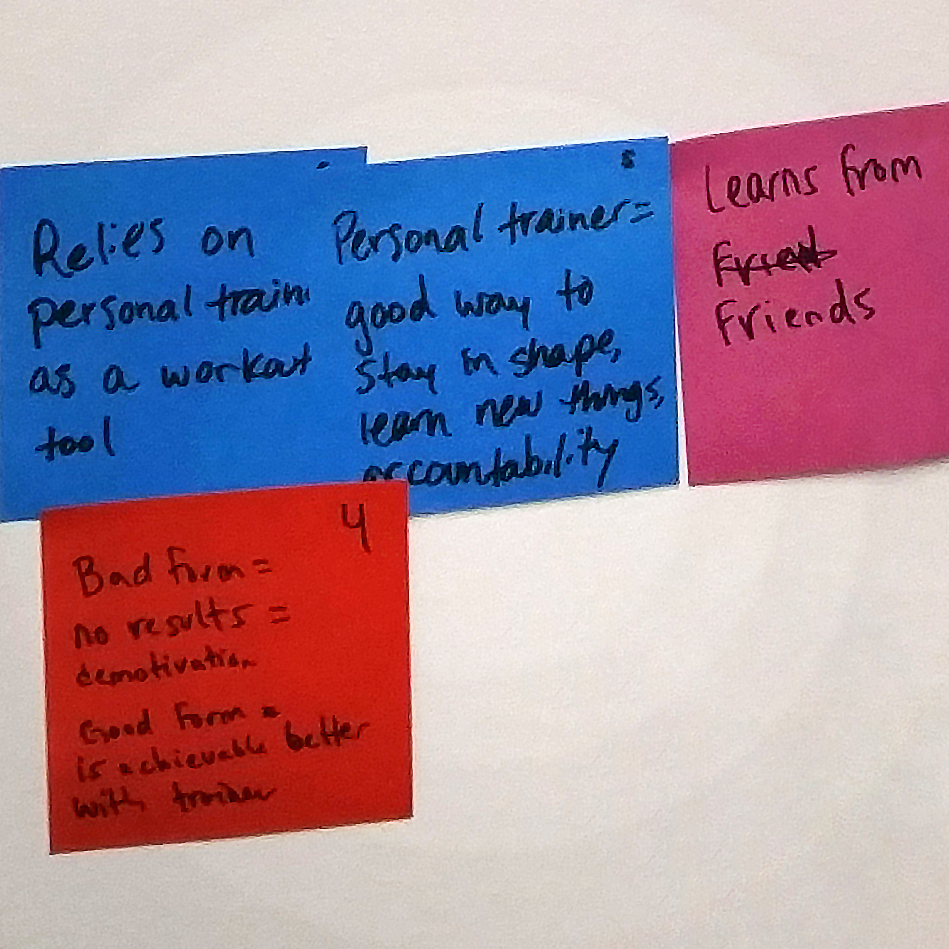 Relies on
personal train
as a workout
tool
Personal trainer=
good way to
stay in shape,
learn new things,
accountability
Learns from
Friends
4
Bad form =
no results =
demotivation
Good form =
is achievable better
with trainer